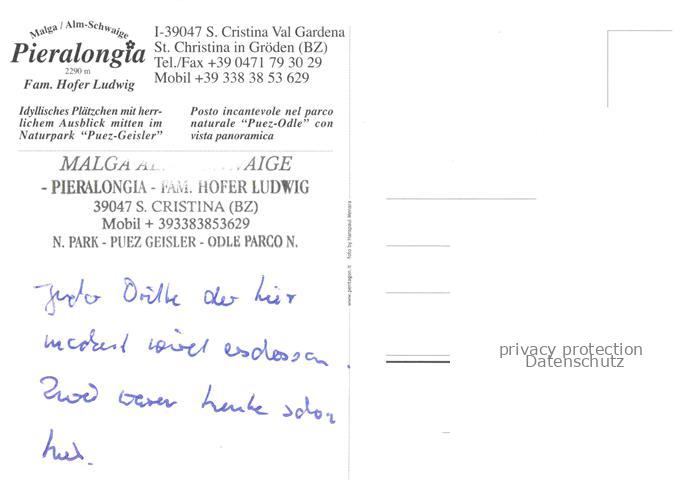 Malga / Alm-Schwaige
Pieralongia
2290 m
Fam. Hofer Ludwig
I-39047 S. Cristina Val Gardena
St. Christina in Gröden (BZ)
Tel./Fax +39 0471 79 30 29
Mobil +39 338 38 53 629
Idyllisches Plätzchen mit herr-
lichem Ausblick mitten im
Naturpark “Puez-Geisler”
Posto incantevole nel parco
naturale “Puez-Odle” con
vista panoramica
MALGA AIGE
- PIERALONGIA - FAM. HOFER LUDWIG
39047 S. CRISTINA (BZ)
Mobil + 393383853629
N. PARK - PUEZ GEISLER - ODLE PARCO N.
Jeder Dritte der hier
meckert wird erschossen.
Zwei waren heute schon
hier.
www.pentagon.it foto by Hanspaul Menara
privacy protection
Datenschutz